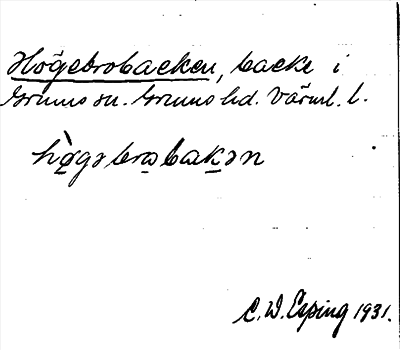 Högebrobacken, backe i
Grums sn. Grums hd. Värml. l.
hö̀gəbrobakən
C. W. Esping 1931.